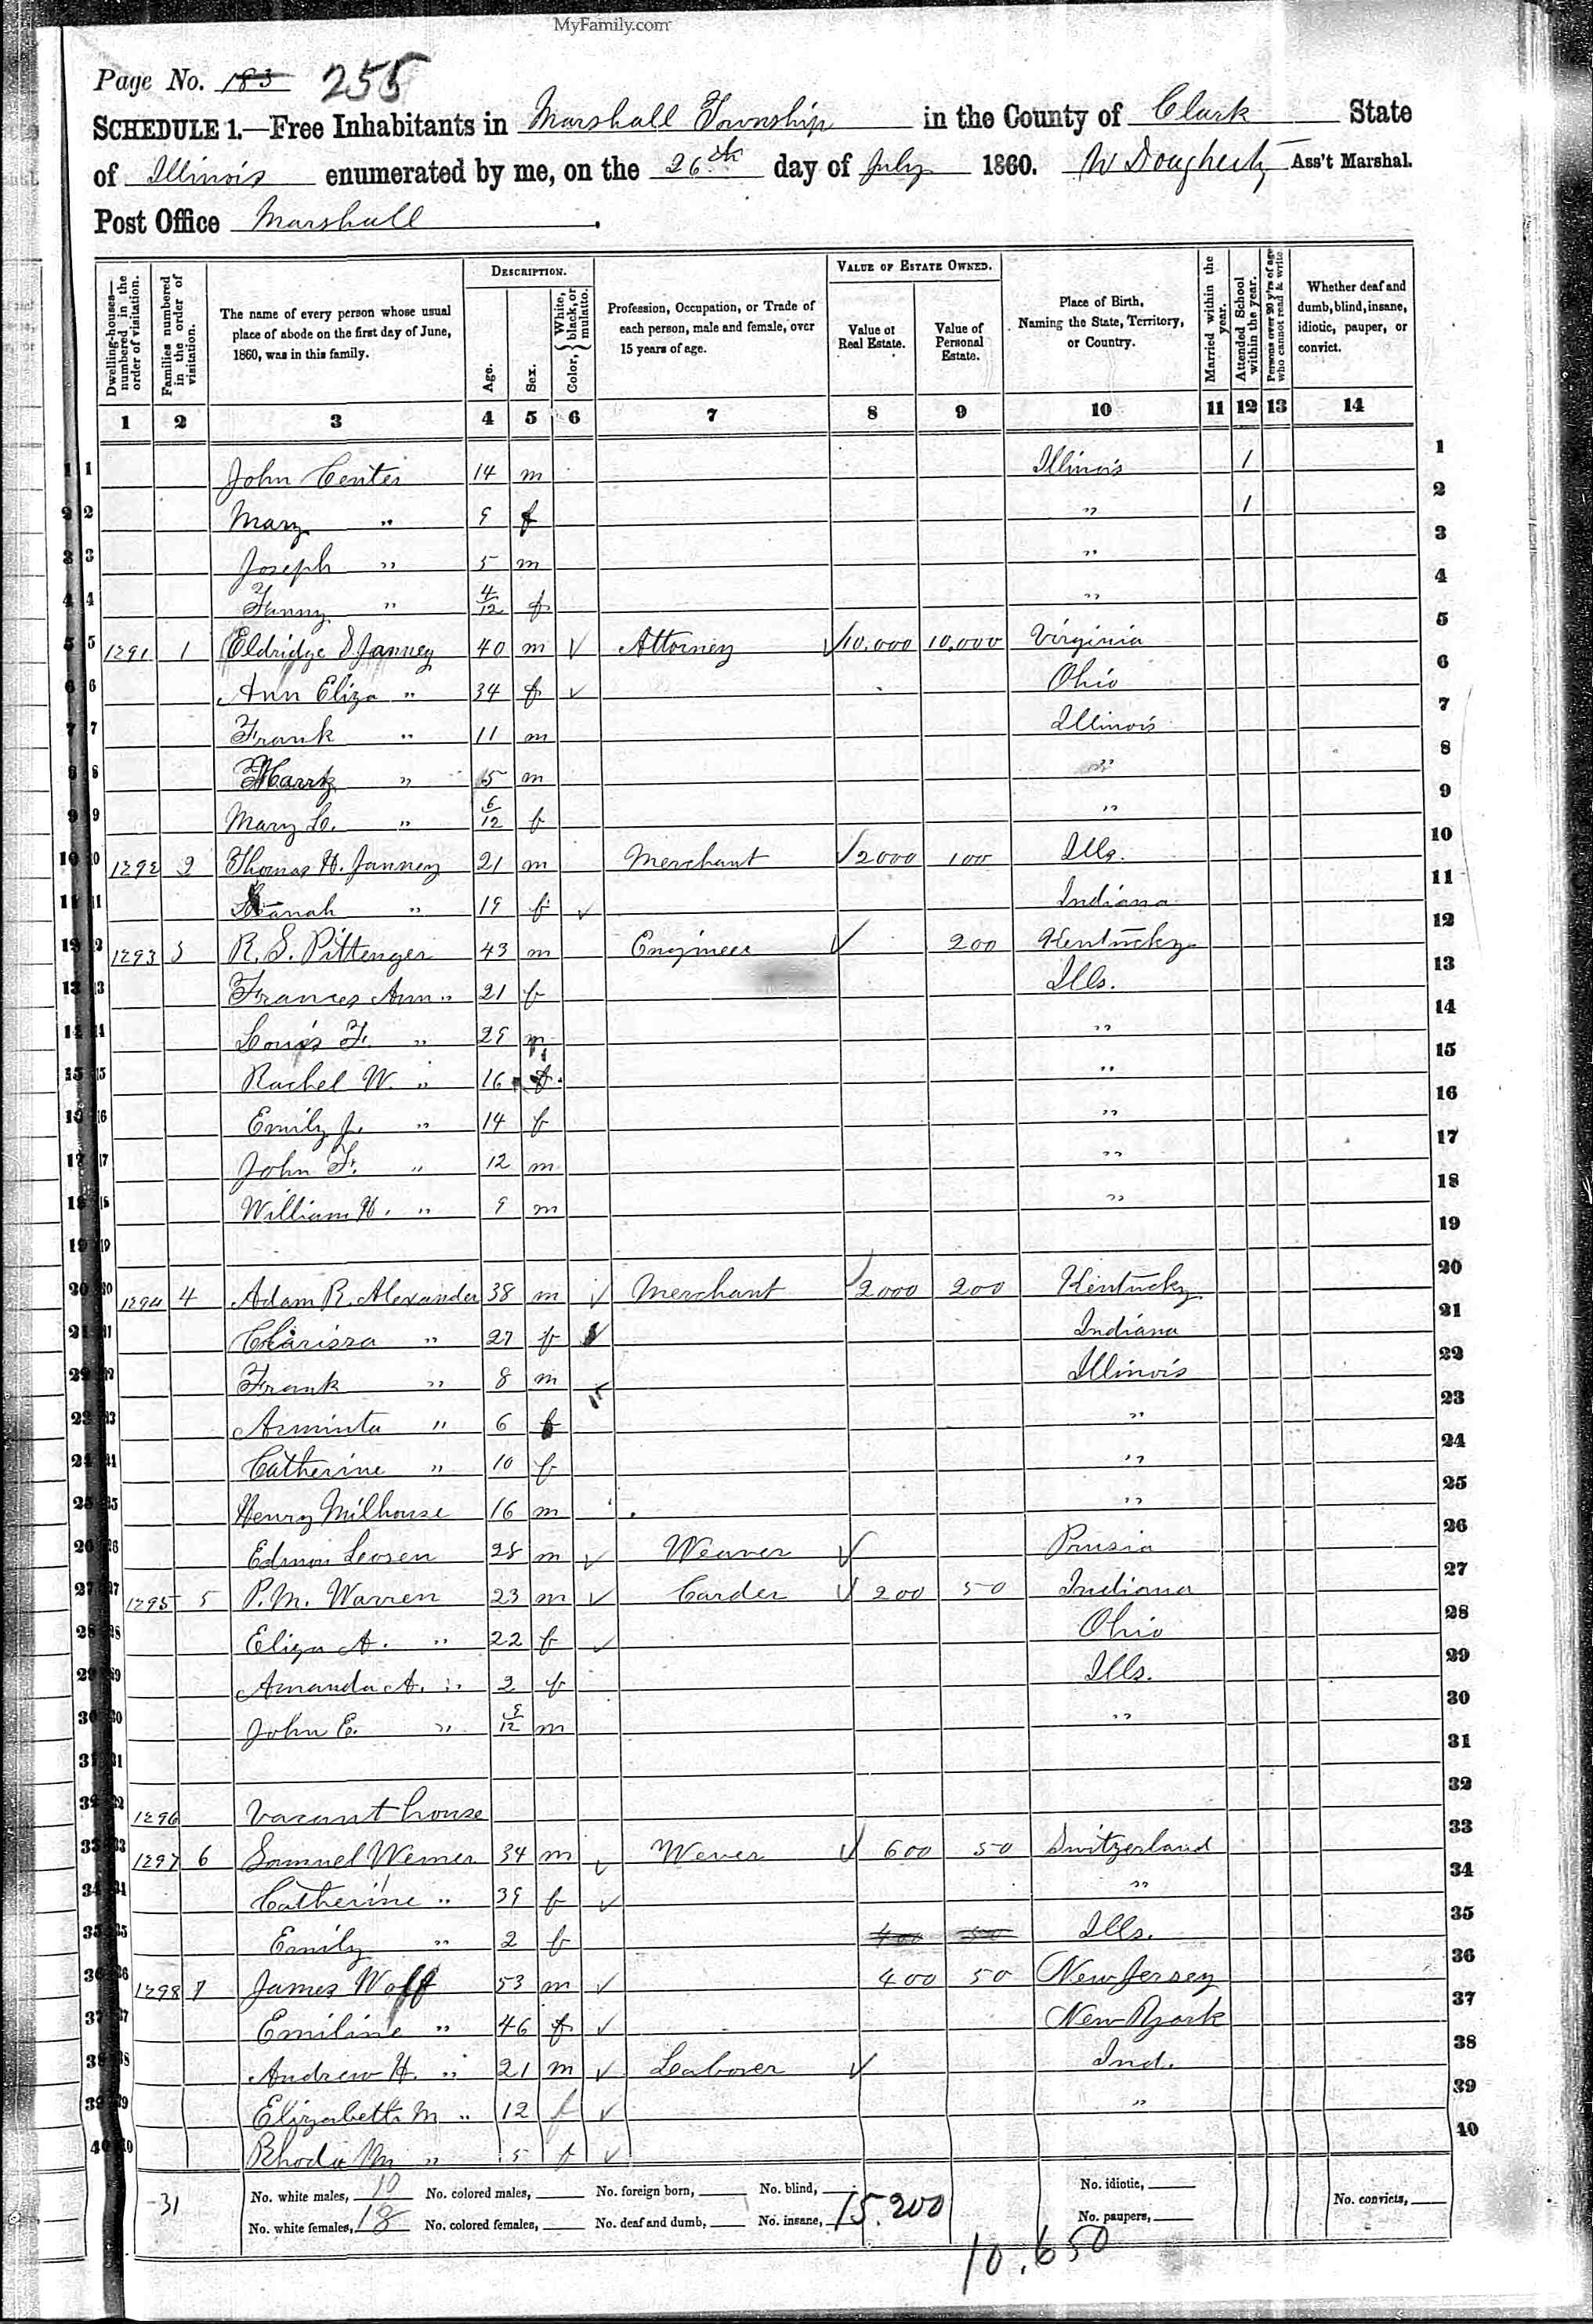 MyFamily.com
Page No. 183 255
SCHEDULE 1.—Free Inhabitants in Marshall Township in the County of Clark State
of Illinois enumerated by me, on the 26th day of July 1860. W Dougherty Ass't Marshal.
Post Office Marshall.
Dwelling-houses—numbered in the order of visitation. Families numbered in the order of visitation. The name of every person whose usual place of abode on the first day of June, 1860, was in this family. DESCRIPTION. Age. Sex. Color, { White, black, or mulatto. Profession, Occupation, or Trade of each person, male and female, over 15 years of age. VALUE OF ESTATE OWNED. Value of Real Estate. Value of Personal Estate. Place of Birth, Naming the State, Territory, or Country. Married within the year. Attended School within the year. Persons over 20 y'rs of age who cannot read & write. Whether deaf and dumb, blind, insane, idiotic, pauper, or convict.
1 2 3 4 5 6 7 8 9 10 11 12 13 14
1 John Center 14 m Illinois 1 1
2 Mary " 9 f " 1 2
3 Joseph " 5 m " 3
4 Fanny " 4/12 f " 4
5 1291 1 Eldridge S Janney 40 m Attorney 10,000 10,000 Virginia 5
6 Ann Eliza " 34 f Ohio 6
7 Frank " 11 m Illinois 7
8 Harry " 5 m " 8
9 Mary L. " 6/12 f " 9
10 1292 2 Thomas H. Janney 21 m Merchant 2000 100 Ills. 10
11 " 19 f Indiana 11
12 1293 3 R. S. Pittenger 43 m Engineer 200 Kentucky 12
13 Frances Ann " 21 f Ills. 13
14 Louis F. " 29 m " 14
15 Rachel W. " 16 f " 15
16 Emily J. " 14 f " 16
17 John F. " 12 m " 17
18 William H. " 9 m " 18
19 19
20 1294 4 Adam R. Alexander 38 m Merchant 2000 200 Kentucky 20
21 Clarissa " 27 f Indiana 21
22 Frank " 8 m Illinois 22
23 Arminta " 6 f " 23
24 Catherine " 10 f " 24
25 Henry Milhouse 16 m " 25
26 Edmon Loosen 28 m Weaver Prusia 26
27 1295 5 P. M. Warren 23 m Carder 200 50 Indiana 27
28 Eliza A. " 22 f Ohio 28
29 Amanda A. " 2 f Ills. 29
30 John E. " 9/12 m " 30
31 31
32 1296 Vacant house 32
33 1297 6 Samuel Werner 34 m Wever 600 50 Switzerland 33
34 Catherine " 39 f " 34
35 Emily " 2 f 400 50 Ills. 35
36 1298 7 James Woff 53 m 400 50 New Jersey 36
37 Emiline " 46 f New York 37
38 Andrew H. " 21 m Laborer Ind. 38
39 Elizabeth M " 12 f " 39
40 Rhoda M " 5 f 40
31 No. white males, No. colored males, No. foreign born, No. blind, No. idiotic, No. convicts,
No. white females, 18 No. colored females, No. deaf and dumb, No. insane, 15.200 No. paupers,
10.650